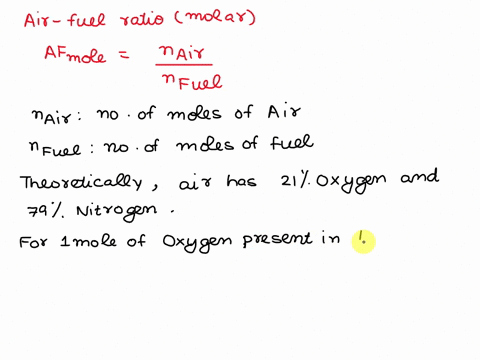 Air-fuel ratio (molar)
AFmole = nAir / nFuel
nAir : no. of moles of Air
nFuel : no. of moles of fuel
Theoretically, air has 21% Oxygen and
79% Nitrogen.
For 1mole of Oxygen present in